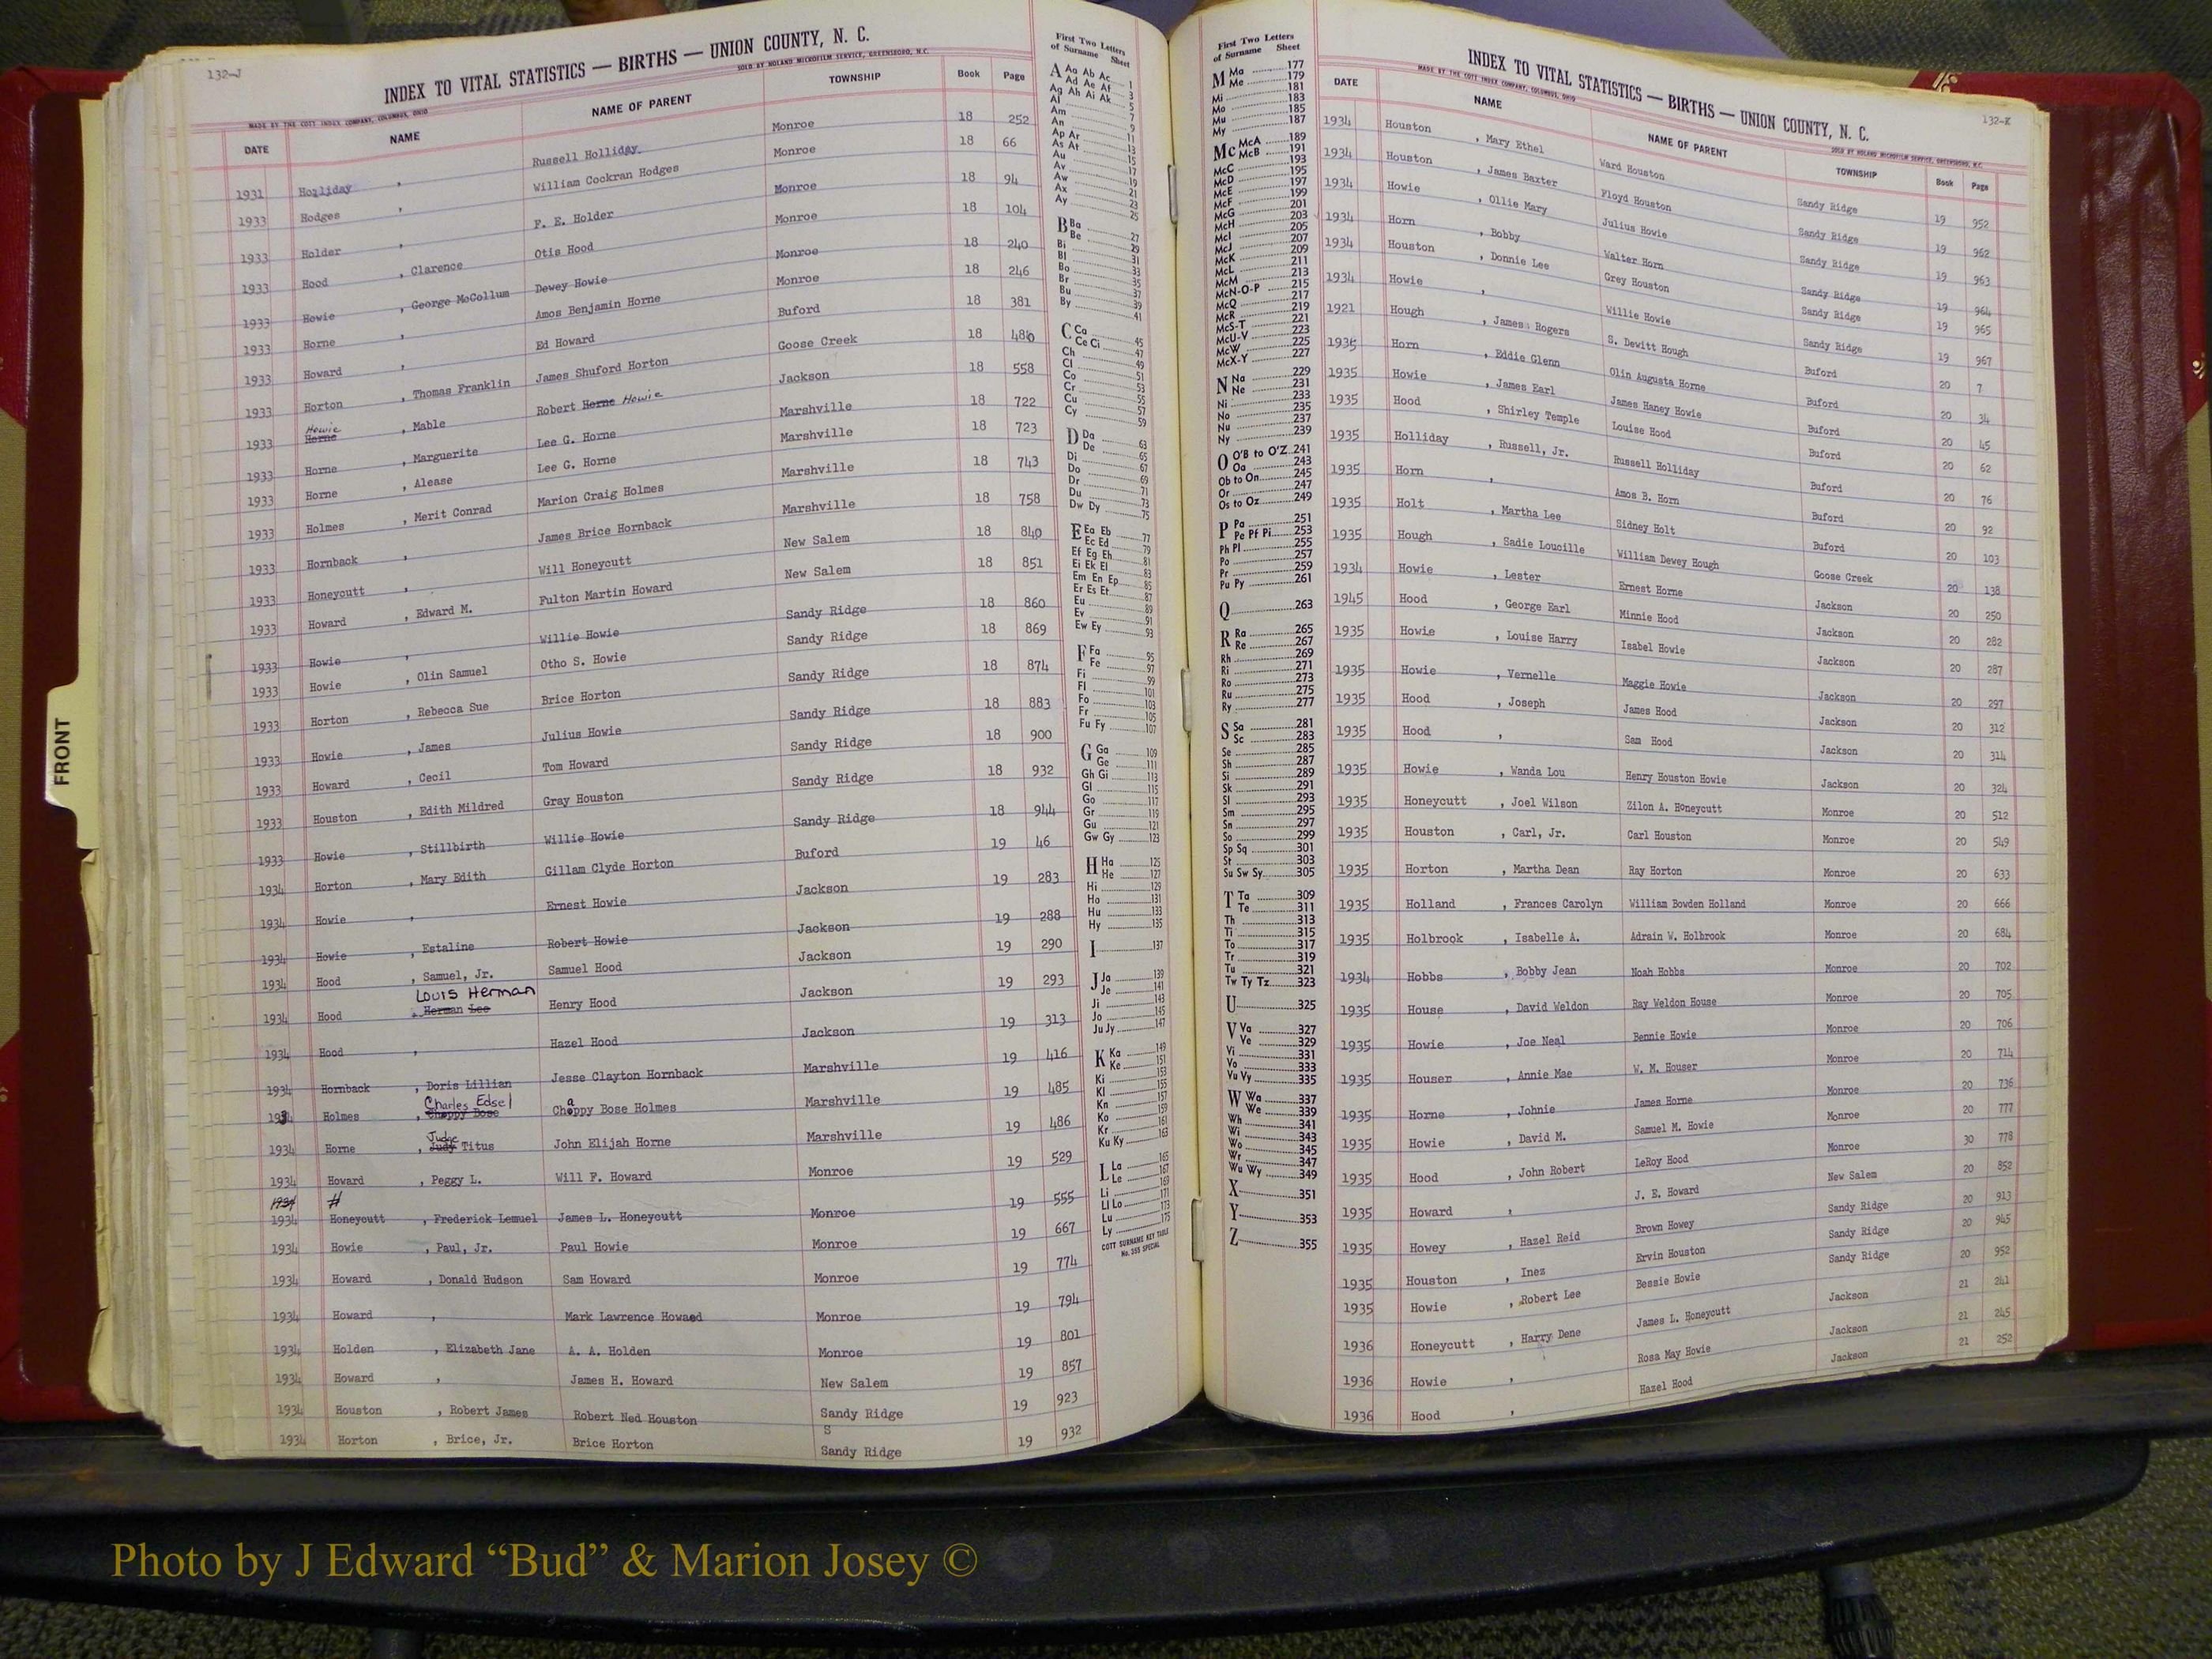 132-J
INDEX TO VITAL STATISTICS — BIRTHS — UNION COUNTY, N. C.
MADE BY THE COTT INDEX COMPANY, COLUMBUS, OHIO SOLD BY NOLAND MICROFILM SERVICE, GREENSBORO, N.C.
DATE NAME NAME OF PARENT TOWNSHIP Book Page
1931 Holliday , Russell Holliday Monroe 18 252
1933 Hodges , William Cockran Hodges Monroe 18 66
1933 Holder , F. E. Holder Monroe 18 94
1933 Hood , Clarence Otis Hood Monroe 18 104
1933 Howie , George McCollum Dewey Howie Monroe 18 240
1933 Horne , Amos Benjamin Horne Monroe 18 246
1933 Howard , Ed Howard Buford 18 381
1933 Horton , Thomas Franklin James Shuford Horton Goose Creek 18 480
1933 Horne Howie , Mable Robert Horne Howie Jackson 18 558
1933 Horne , Marguerite Lee G. Horne Marshville 18 722
1933 Horne , Alease Lee G. Horne Marshville 18 723
1933 Holmes , Merit Conrad Marion Craig Holmes Marshville 18 743
1933 Hornback , James Brice Hornback Marshville 18 758
1933 Honeycutt , Will Honeycutt New Salem 18 840
1933 Howard , Edward M. Fulton Martin Howard New Salem 18 851
1933 Howie , Willie Howie Sandy Ridge 18 860
1933 Howie , Olin Samuel Otho S. Howie Sandy Ridge 18 869
1933 Horton , Rebecca Sue Brice Horton Sandy Ridge 18 874
1933 Howie , James Julius Howie Sandy Ridge 18 883
1933 Howard , Cecil Tom Howard Sandy Ridge 18 900
1933 Houston , Edith Mildred Gray Houston Sandy Ridge 18 932
1933 Howie , Stillbirth Willie Howie Sandy Ridge 18 944
1934 Horton , Mary Edith Gillam Clyde Horton Buford 19 46
1934 Howie , Ernest Howie Jackson 19 283
1934 Howie , Estaline Robert Howie Jackson 19 288
1934 Hood , Samuel, Jr. Samuel Hood Jackson 19 290
Louis Herman
1934 Hood , Herman Lee Henry Hood Jackson 19 293
1934 Hood , Hazel Hood Jackson 19 313
1934 Hornback , Doris Lillian Jesse Clayton Hornback Marshville 19 416
Charles Edsel
193 Holmes , Choppy Bose Chappy Bose Holmes Marshville 19 485
Judge
1934 Horne , Judy Titus John Elijah Horne Marshville 19 486
1934 Howard , Peggy L. Will F. Howard Monroe 19 529
1934 H
1934 Honeycutt , Frederick Lemuel James L. Honeycutt Monroe 19 555
1934 Howie , Paul, Jr. Paul Howie Monroe 19 667
1934 Howard , Donald Hudson Sam Howard Monroe 19 774
1934 Howard , Mark Lawrence Howaed Monroe 19 794
1934 Holden , Elizabeth Jane A. A. Holden Monroe 19 801
1934 Howard , James H. Howard New Salem 19 857
1934 Houston , Robert James Robert Ned Houston Sandy Ridge 19 923
S
1934 Horton , Brice, Jr. Brice Horton Sandy Ridge 19 932
First Two Letters
of Surname Sheet
A Aa Ab Ac 1
Ad Ae Af 3
Ag Ah Ai Ak 5
Al 7
Am 9
An 11
Ap Ar 13
As At 15
Au 17
Av 19
Aw 21
Ax 23
Ay 25
B Ba 27
Be 29
Bi 31
Bl 33
Bo 35
Br 37
Bu 39
By 41
C Ca 45
Ce Ci 47
Ch 49
Cl 51
Co 53
Cr 55
Cu 57
Cy 59
D Da 63
De 65
Di 67
Do 69
Dr 71
Du 73
Dw Dy 75
E Ea Eb 77
Ec Ed 79
Ef Eg Eh 81
Ei Ek El 83
Em En Ep 85
Er Es Et 87
Eu 89
Ev 91
Ew Ey 93
F Fa 95
Fe 97
Fi 99
Fl 101
Fo 103
Fr 105
Fu Fy 107
G Ga 109
Ge 111
Gh Gi 113
Gl 115
Go 117
Gr 119
Gu 121
Gw Gy 123
H Ha 125
He 127
Hi 129
Ho 131
Hu 133
Hy 135
I 137
J Ja 139
Je 141
Ji 143
Jo 145
Ju Jy 147
K Ka 149
Ke 151
Ki 153
Kl 155
Kn 157
Ko 159
Kr 161
Ku Ky 163
L La 165
Le 167
Li 169
Ll Lo 171
Lu 173
Ly 175
COTT SURNAME KEY TABLE
No. 355 SPECIAL
FRONT
First Two Letters
of Surname Sheet
M Ma 177
Me 179
Mi 181
Mo 183
Mu 185
My 187
Mc McA 189
McB 191
McC 193
McD 195
McE 197
McF 199
McG 201
McH 203
McI 205
McJ 207
McK 209
McL 211
McM 213
McN-O-P 215
McQ 217
McR 219
McS-T 221
McU-V 223
McW 225
McX-Y 227
N Na 229
Ne 231
Ni 233
No 235
Nu 237
Ny 239
O O'B to O'Z 241
Oa 243
Ob to On 245
Or 247
Os to Oz 249
P Pa 251
Pe Pf Pi 253
Ph Pl 255
Po 257
Pr 259
Pu Py 261
Q 263
R Ra 265
Re 267
Rh 269
Ri 271
Ro 273
Ru 275
Ry 277
S Sa 281
Sc 283
Se 285
Sh 287
Si 289
Sk 291
Sl 293
Sm 295
Sn 297
So 299
Sp Sq 301
St 303
Su Sw Sy 305
T Ta 309
Te 311
Th 313
Ti 315
To 317
Tr 319
Tu 321
Tw Ty Tz 323
U 325
V Va 327
Ve 329
Vi 331
Vo 333
Vu Vy 335
W Wa 337
We 339
Wh 341
Wi 343
Wo 345
Wr 347
Wu Wy 349
X 351
Y 353
Z 355
132-K
INDEX TO VITAL STATISTICS — BIRTHS — UNION COUNTY, N. C.
MADE BY THE COTT INDEX COMPANY, COLUMBUS, OHIO SOLD BY NOLAND MICROFILM SERVICE, GREENSBORO, N.C.
DATE NAME NAME OF PARENT TOWNSHIP Book Page
1934 Houston , Mary Ethel Ward Houston Sandy Ridge 19 952
1934 Houston , James Baxter Floyd Houston Sandy Ridge 19 962
1934 Howie , Ollie Mary Julius Howie Sandy Ridge 19 963
1934 Horn , Bobby Walter Horn Sandy Ridge 19 964
1934 Houston , Donnie Lee Grey Houston Sandy Ridge 19 965
1934 Howie , Willie Howie Sandy Ridge 19 967
1921 Hough , James Rogers S. Dewitt Hough Buford 20 7
1935 Horn , Eddie Glenn Olin Augusta Horne Buford 20 34
1935 Howie , James Earl James Haney Howie Buford 20 45
1935 Hood , Shirley Temple Louise Hood Buford 20 62
1935 Holliday , Russell, Jr. Russell Holliday Buford 20 76
1935 Horn , Amos B. Horn Buford 20 92
1935 Holt , Martha Lee Sidney Holt Buford 20 103
1935 Hough , Sadie Loucille William Dewey Hough Goose Creek 20 138
1934 Howie , Lester Ernest Horne Jackson 20 250
1945 Hood , George Earl Minnie Hood Jackson 20 282
1935 Howie , Louise Harry Isabel Howie Jackson 20 287
1935 Howie , Vernelle Maggie Howie Jackson 20 297
1935 Hood , Joseph James Hood Jackson 20 312
1935 Hood , Sam Hood Jackson 20 314
1935 Howie , Wanda Lou Henry Houston Howie Jackson 20 324
1935 Honeycutt , Joel Wilson Zilon A. Honeycutt Monroe 20 512
1935 Houston , Carl, Jr. Carl Houston Monroe 20 549
1935 Horton , Martha Dean Ray Horton Monroe 20 633
1935 Holland , Frances Carolyn William Bowden Holland Monroe 20 666
1935 Holbrook , Isabelle A. Adrain W. Holbrook Monroe 20 684
1934 Hobbs , Bobby Jean Noah Hobbs Monroe 20 702
1935 House , David Weldon Ray Weldon House Monroe 20 705
1935 Howie , Joe Neal Bennie Howie Monroe 20 706
1935 Houser , Annie Mae W. M. Houser Monroe 20 714
1935 Horne , Johnie James Horne Monroe 20 736
1935 Howie , David M. Samuel M. Howie Monroe 20 777
1935 Hood , John Robert LeRoy Hood Monroe 30 778
1935 Howard , J. E. Howard New Salem 20 852
1935 Howey , Hazel Reid Brown Howey Sandy Ridge 20 913
1935 Houston , Inez Ervin Houston Sandy Ridge 20 945
1935 Howie , Robert Lee Bessie Howie Sandy Ridge 20 952
1936 Honeycutt , Harry Dene James L. Honeycutt Jackson 21 241
1936 Howie , Rosa May Howie Jackson 21 245
1936 Hood , Hazel Hood Jackson 21 252
Photo by J Edward “Bud” & Marion Josey ©